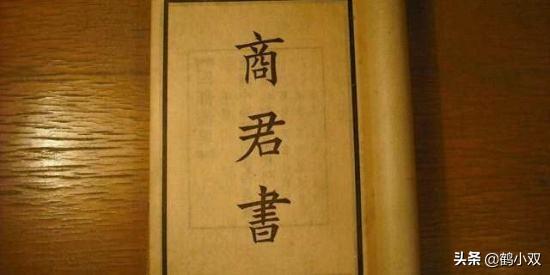 商君書
头条 @鹤小双